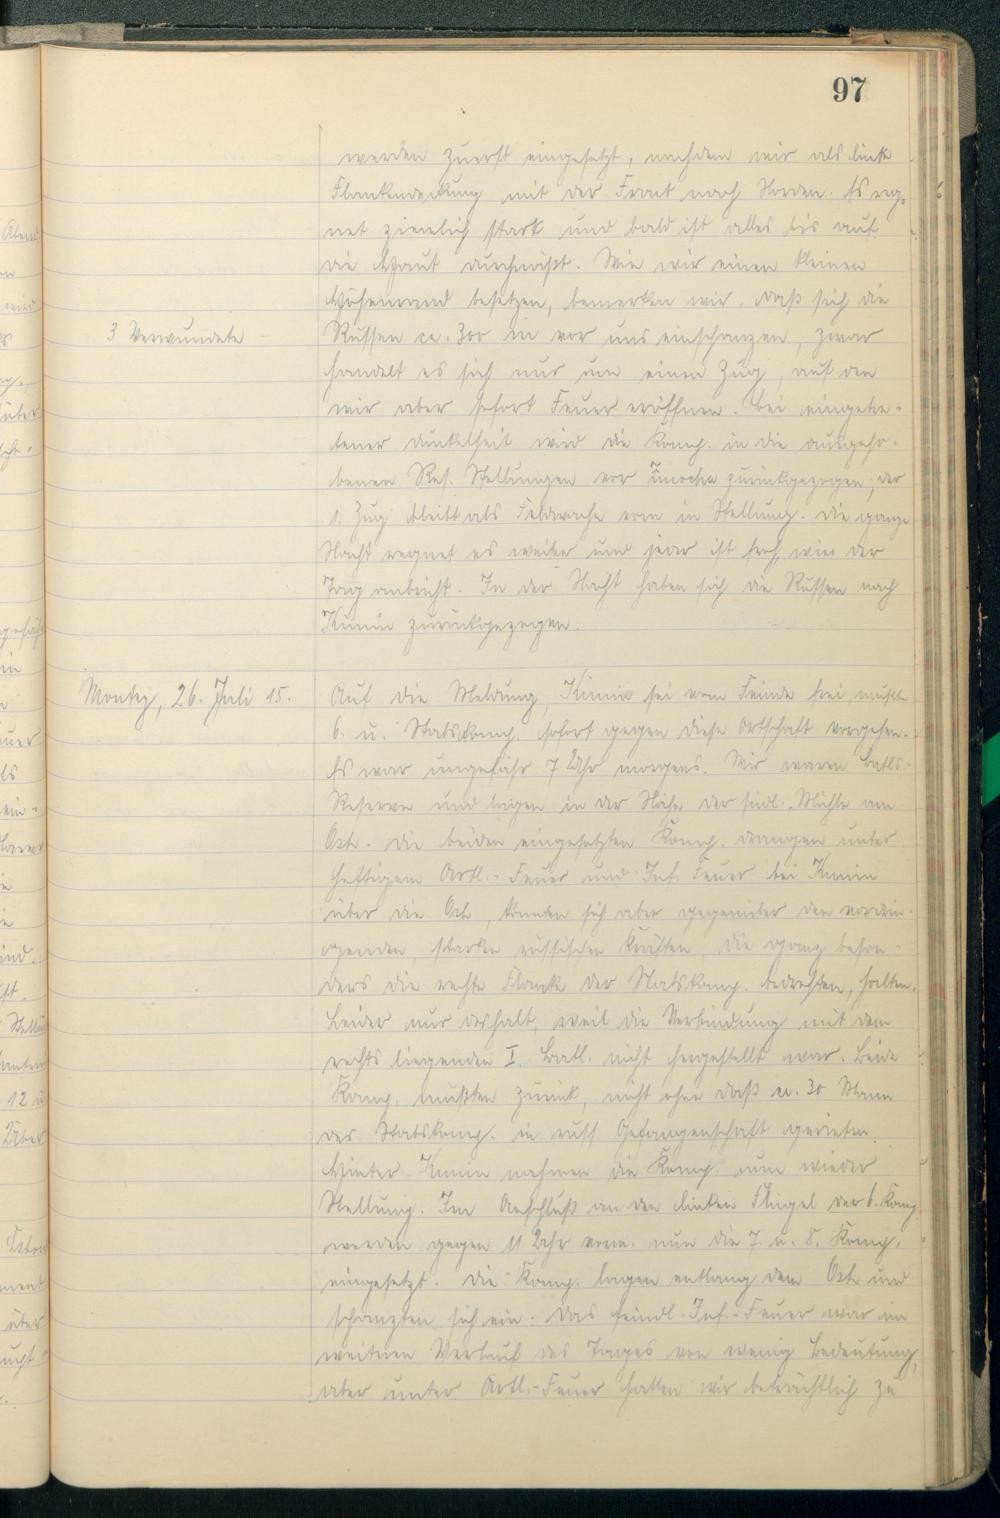 97
werden zuerst eingesetzt, nachdem wir als linke
Flankendeckung mit der Front nach Norden. Es reg-
net ziemlich stark und bald ist alles bis auf
die Haut durchnäßt. Wie wir einen kleinen
Höhenrand besetzen, bemerken wir, daß sich die
3 Verwundete
Russen ca. 300 m vor uns einschanzen, zwar
handelt es sich nur um einen Zug, auf den
wir aber sofort Feuer eröffnen. Bei eingetre-
tener Dunkelheit wird die Komp. in die ausgeho-
benen Res. Stellungen vor zurückgezogen, der
1. Zug bleibt als Feldwache vorn in Stellung. Die ganze
Nacht regnet es weiter und jeder ist froh, wie der
Tag anbricht. In der Nacht haben sich die Russen nach
Kimin zurückgezogen.
Montag, 26. Juli 15.
Auf die Meldung, Kimin sei vom Feinde frei, mußte
6. u. Stabskomp. sofort gegen diese Ortschaft vorgehen.
Es war ungefähr 7 Uhr morgens. Wir waren Batls.-
Reserve und lagen in der Nähe der südl. Mühle am
Ort. Die beiden eingesetzten Komp. drangen unter
heftigem Artl.-Feuer und Inf. Feuer bei Kimin
über die Ort, konnten sich aber gegenüber den vordrin-
genden, starken russischen Kräften die ganz beson-
ders die rechte Flanke der Stabskomp. bedrohten, halten.
Leider nur deshalb, weil die Verbindung mit dem
rechts liegenden I. Batl. nicht hergestellt war. Beide
Komp. mußten zurück, nicht ohne daß ca. 30 Mann
der Stabskomp. in russ. Gefangenschaft gerieten.
Hinter Kimin nahmen die Komp. nun wieder
Stellung. Im Anschluß an den linken Flügel der 6. Komp.
werden gegen 11 Uhr vorm. nun die 7. u. 8. Komp.
eingesetzt. Die Komp. lagen entlang dem Ort und
schanzten sich ein. Das feindl. Inf.-Feuer war im
weiteren Verlauf des Tages von wenig Bedeutung,
aber unter Artl.-Feuer hatten wir beträchtlich zu